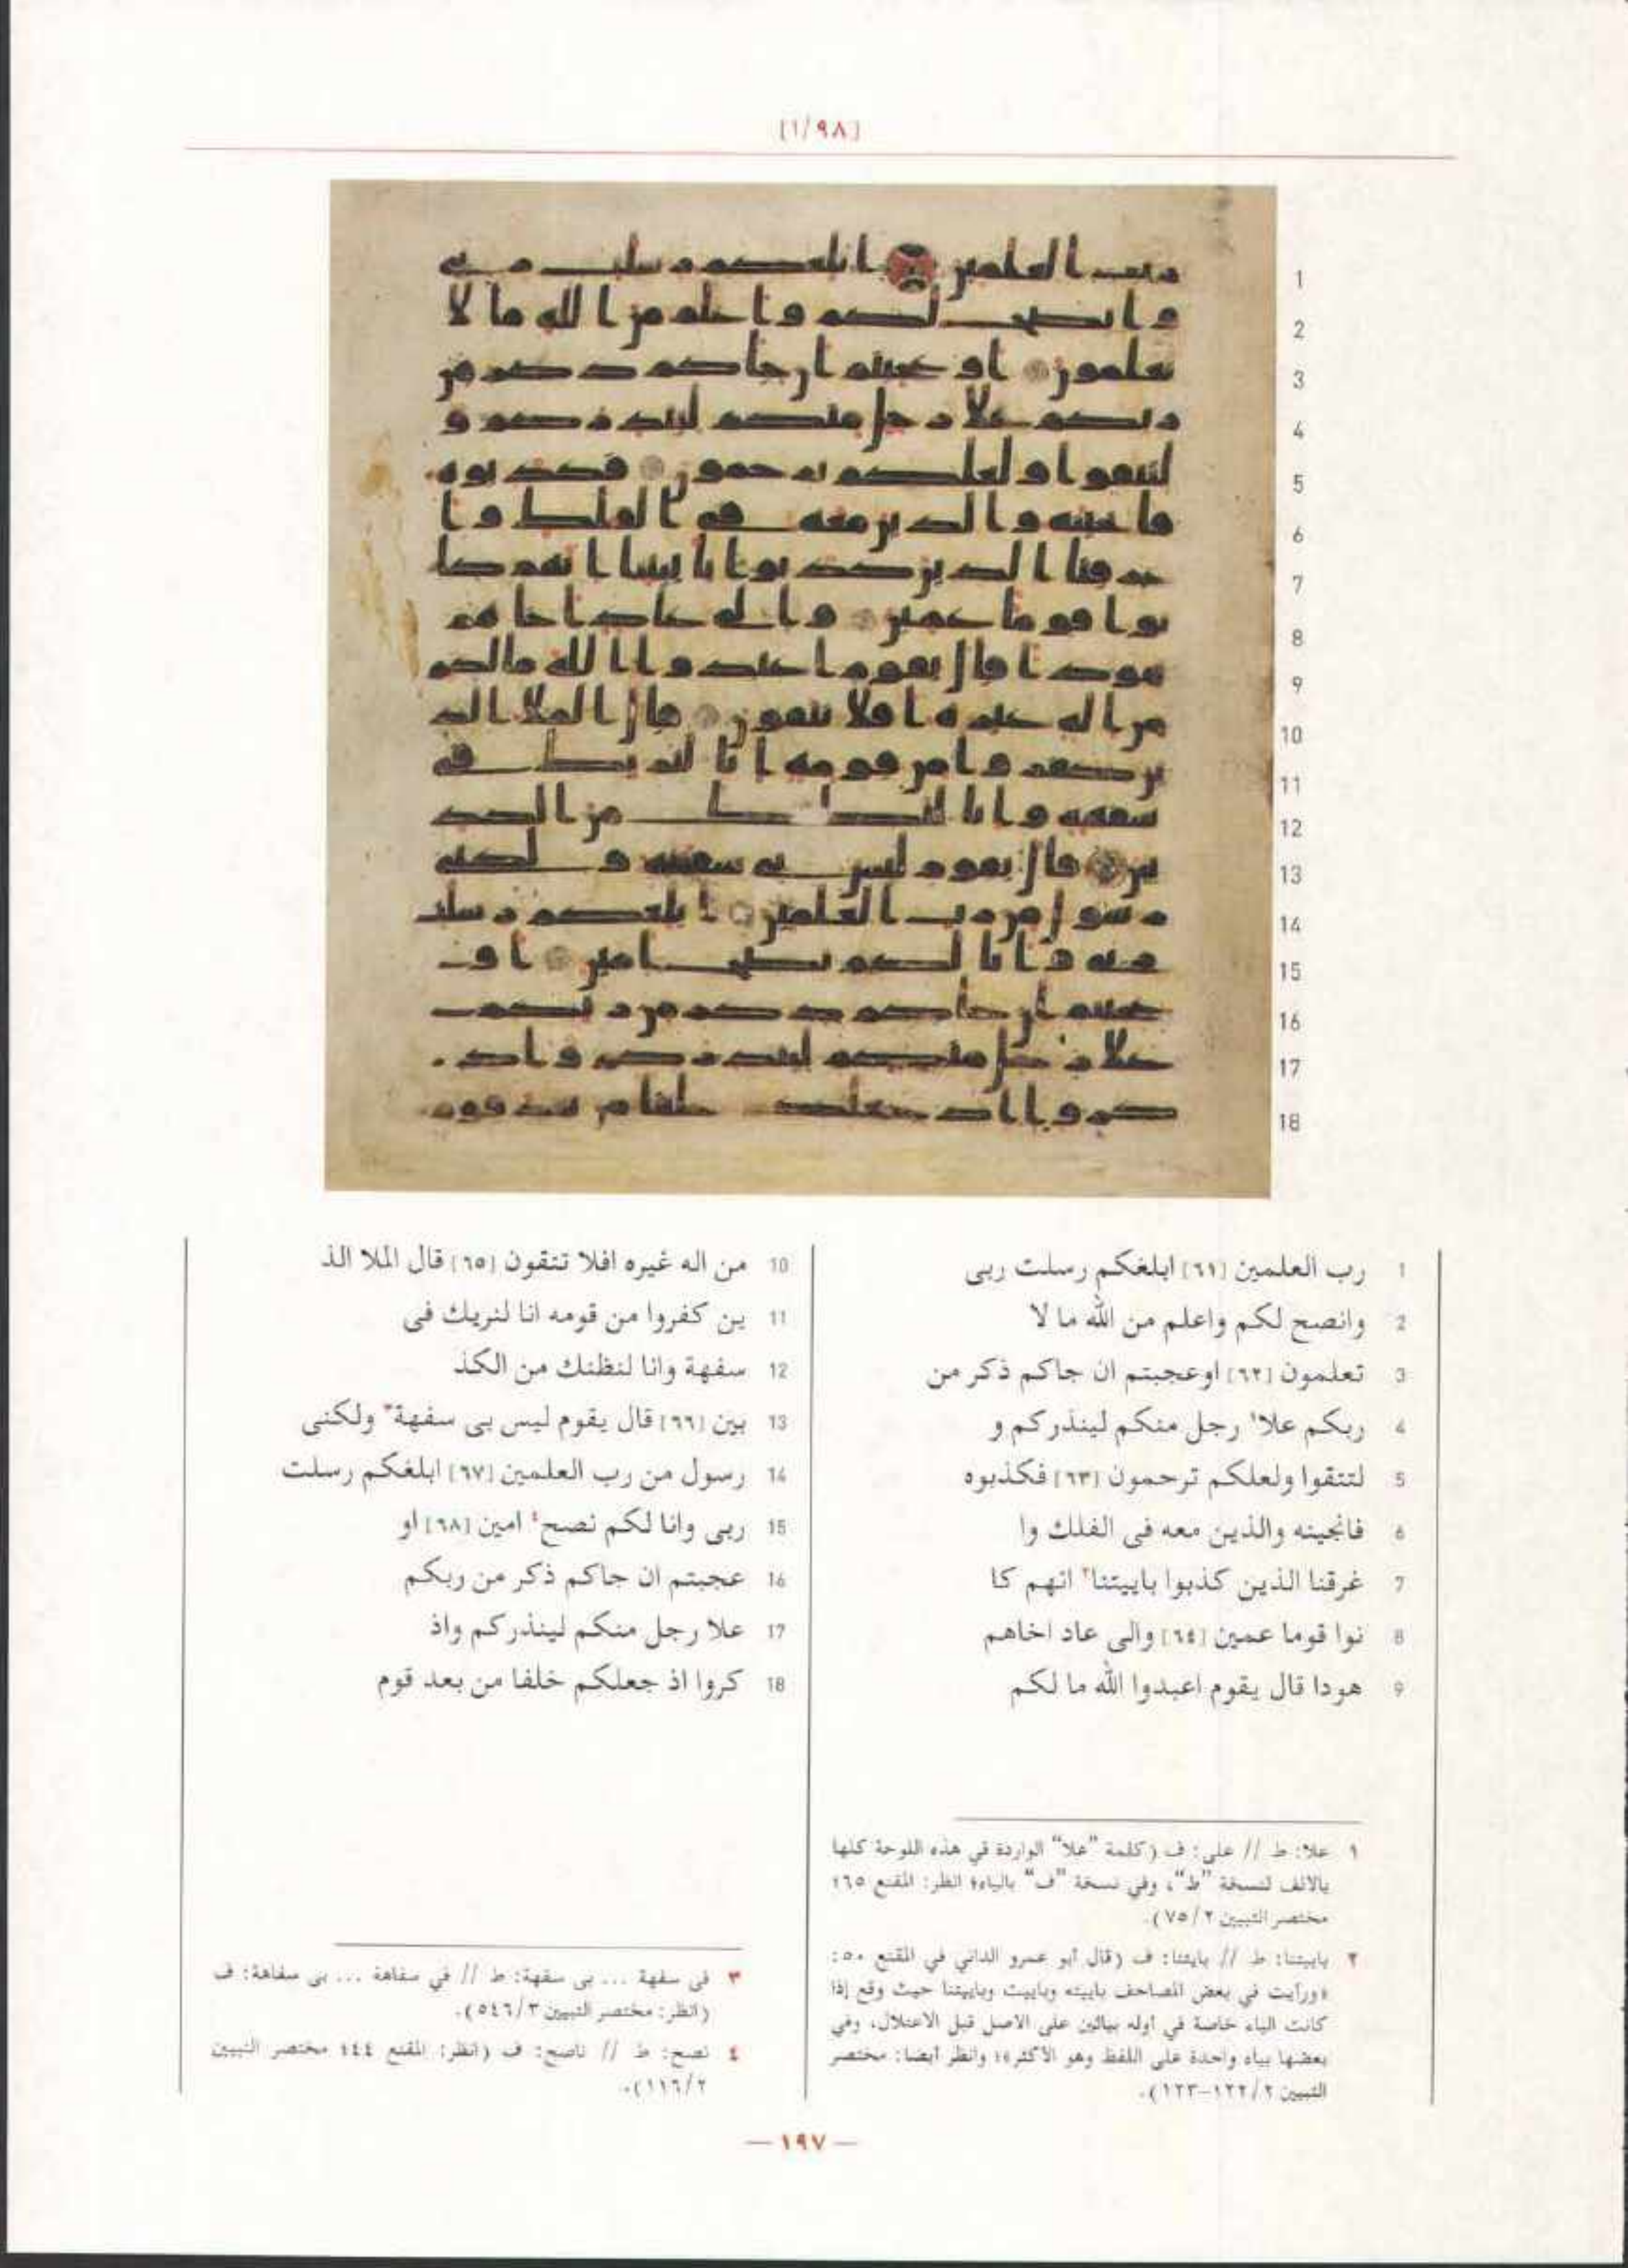 [١/٩٨]
1 رب العلمين [٦١] ابلغكم رسلت ربى
2 وانصح لكم واعلم من الله ما لا
3 تعلمون [٦٢] اوعجبتم ان جاكم ذكر من
4 ربكم علا١ رجل منكم لينذركم و
5 لتتقوا ولعلكم ترحمون [٦٣] فكذبوه
6 فانجينه والذين معه فى الفلك وا
7 غرقنا الذين كذبوا باييتنا٢ انهم كا
8 نوا قوما عمين [٦٤] والى عاد اخاهم
9 هودا قال يقوم اعبدوا الله ما لكم
10 من اله غيره افلا تتقون [٦٥] قال الملا الذ
11 ين كفروا من قومه انا لنريك فى
12 سفهة وانا لنظنك من الكذ
13 بين [٦٦] قال يقوم ليس بى سفهة٣ ولكنى
14 رسول من رب العلمين [٦٧] ابلغكم رسلت
15 ربى وانا لكم نصح٤ امين [٦٨] او
16 عجبتم ان جاكم ذكر من ربكم
17 علا رجل منكم لينذركم واذ
18 كروا اذ جعلكم خلفا من بعد قوم
١ علا: ط // على: ف (كلمة "علا" الواردة في هذه اللوحة كلها
بالالف لنسخة "ط"، وفي نسخة "ف" بالياء؛ انظر: المقنع ٦٥؛
مختصر التبيين ٧٥/٢).
٢ باييتنا: ط // بايتنا: ف (قال أبو عمرو الداني في المقنع ٥٠:
«ورأيت في بعض المصاحف باييته وباييت وباييتنا حيث وقع إذا
كانت الباء خاصة في أوله بيائين على الاصل قبل الاعتلال، وفي
بعضها بياء واحدة على اللفظ وهو الاكثر»؛ وانظر أيضا: مختصر
التبيين ١٢٢/٢-١٢٣).
٣ فى سفهة ... بى سفهة: ط // في سفاهة ... بى سفاهة: ف
(انظر: مختصر التبيين ٥٤٦/٣).
٤ نصح: ط // ناصح: ف (انظر: المقنع ٤٤؛ مختصر التبيين
١١٦/٢).
— ١٩٧ —